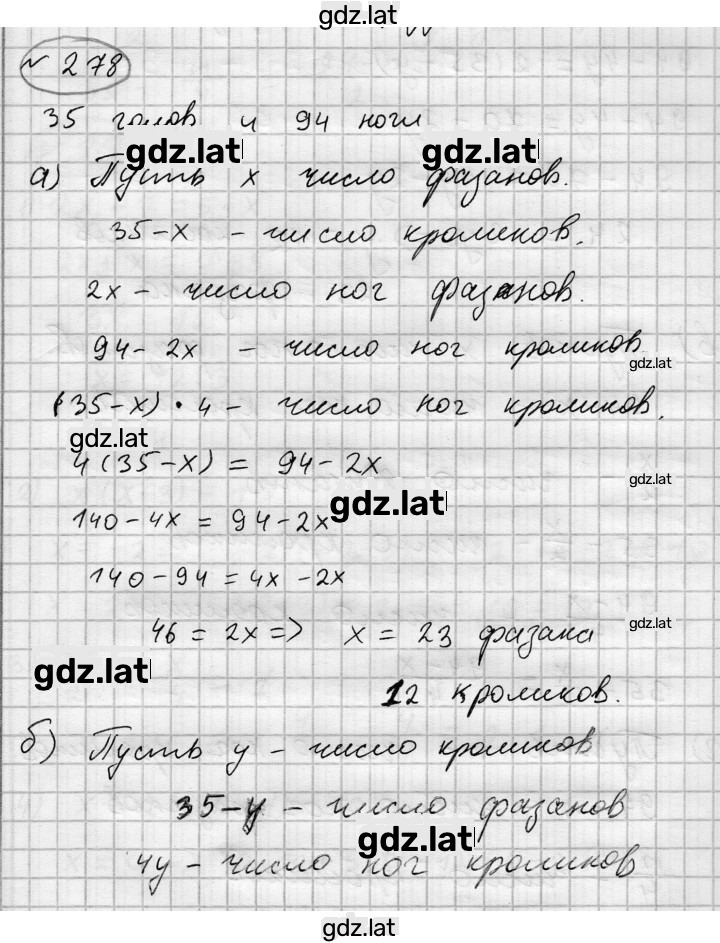 gdz.lat
№ 278
35 голов и 94 ноги
gdz.lat gdz.lat
а) Пусть x число фазанов.
35-x - число кроликов.
2x - число ног фазанов.
94-2x - число ног кроликов
gdz.lat
(35-x)·4 - число ног кроликов.
gdz.lat
4(35-x) = 94-2x
gdz.lat
gdz.lat
140-4x = 94-2x
140-94 = 4x-2x
46 = 2x => x = 23 фазана
gdz.lat
gdz.lat
12 кроликов.
б) Пусть y - число кроликов
35-y - число фазанов
gdz.lat
4y - число ног кроликов
gdz.lat